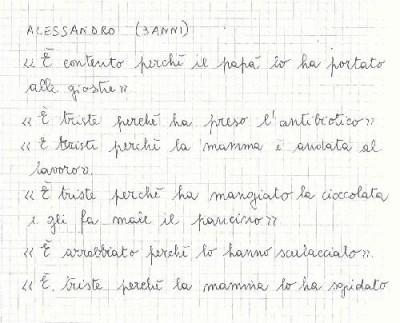 ALESSANDRO (3 ANNI)
« È contento perché il papà lo ha portato
alle giostre»
« È triste perché ha preso l'antibiotico»
« È triste perché la mamma è andata al
lavoro».
« È triste perché ha mangiato la cioccolata
e gli fa male il pancino»
« È arrabbiato perché lo hanno sculacciato».
« È triste perché la mamma lo ha sgridato